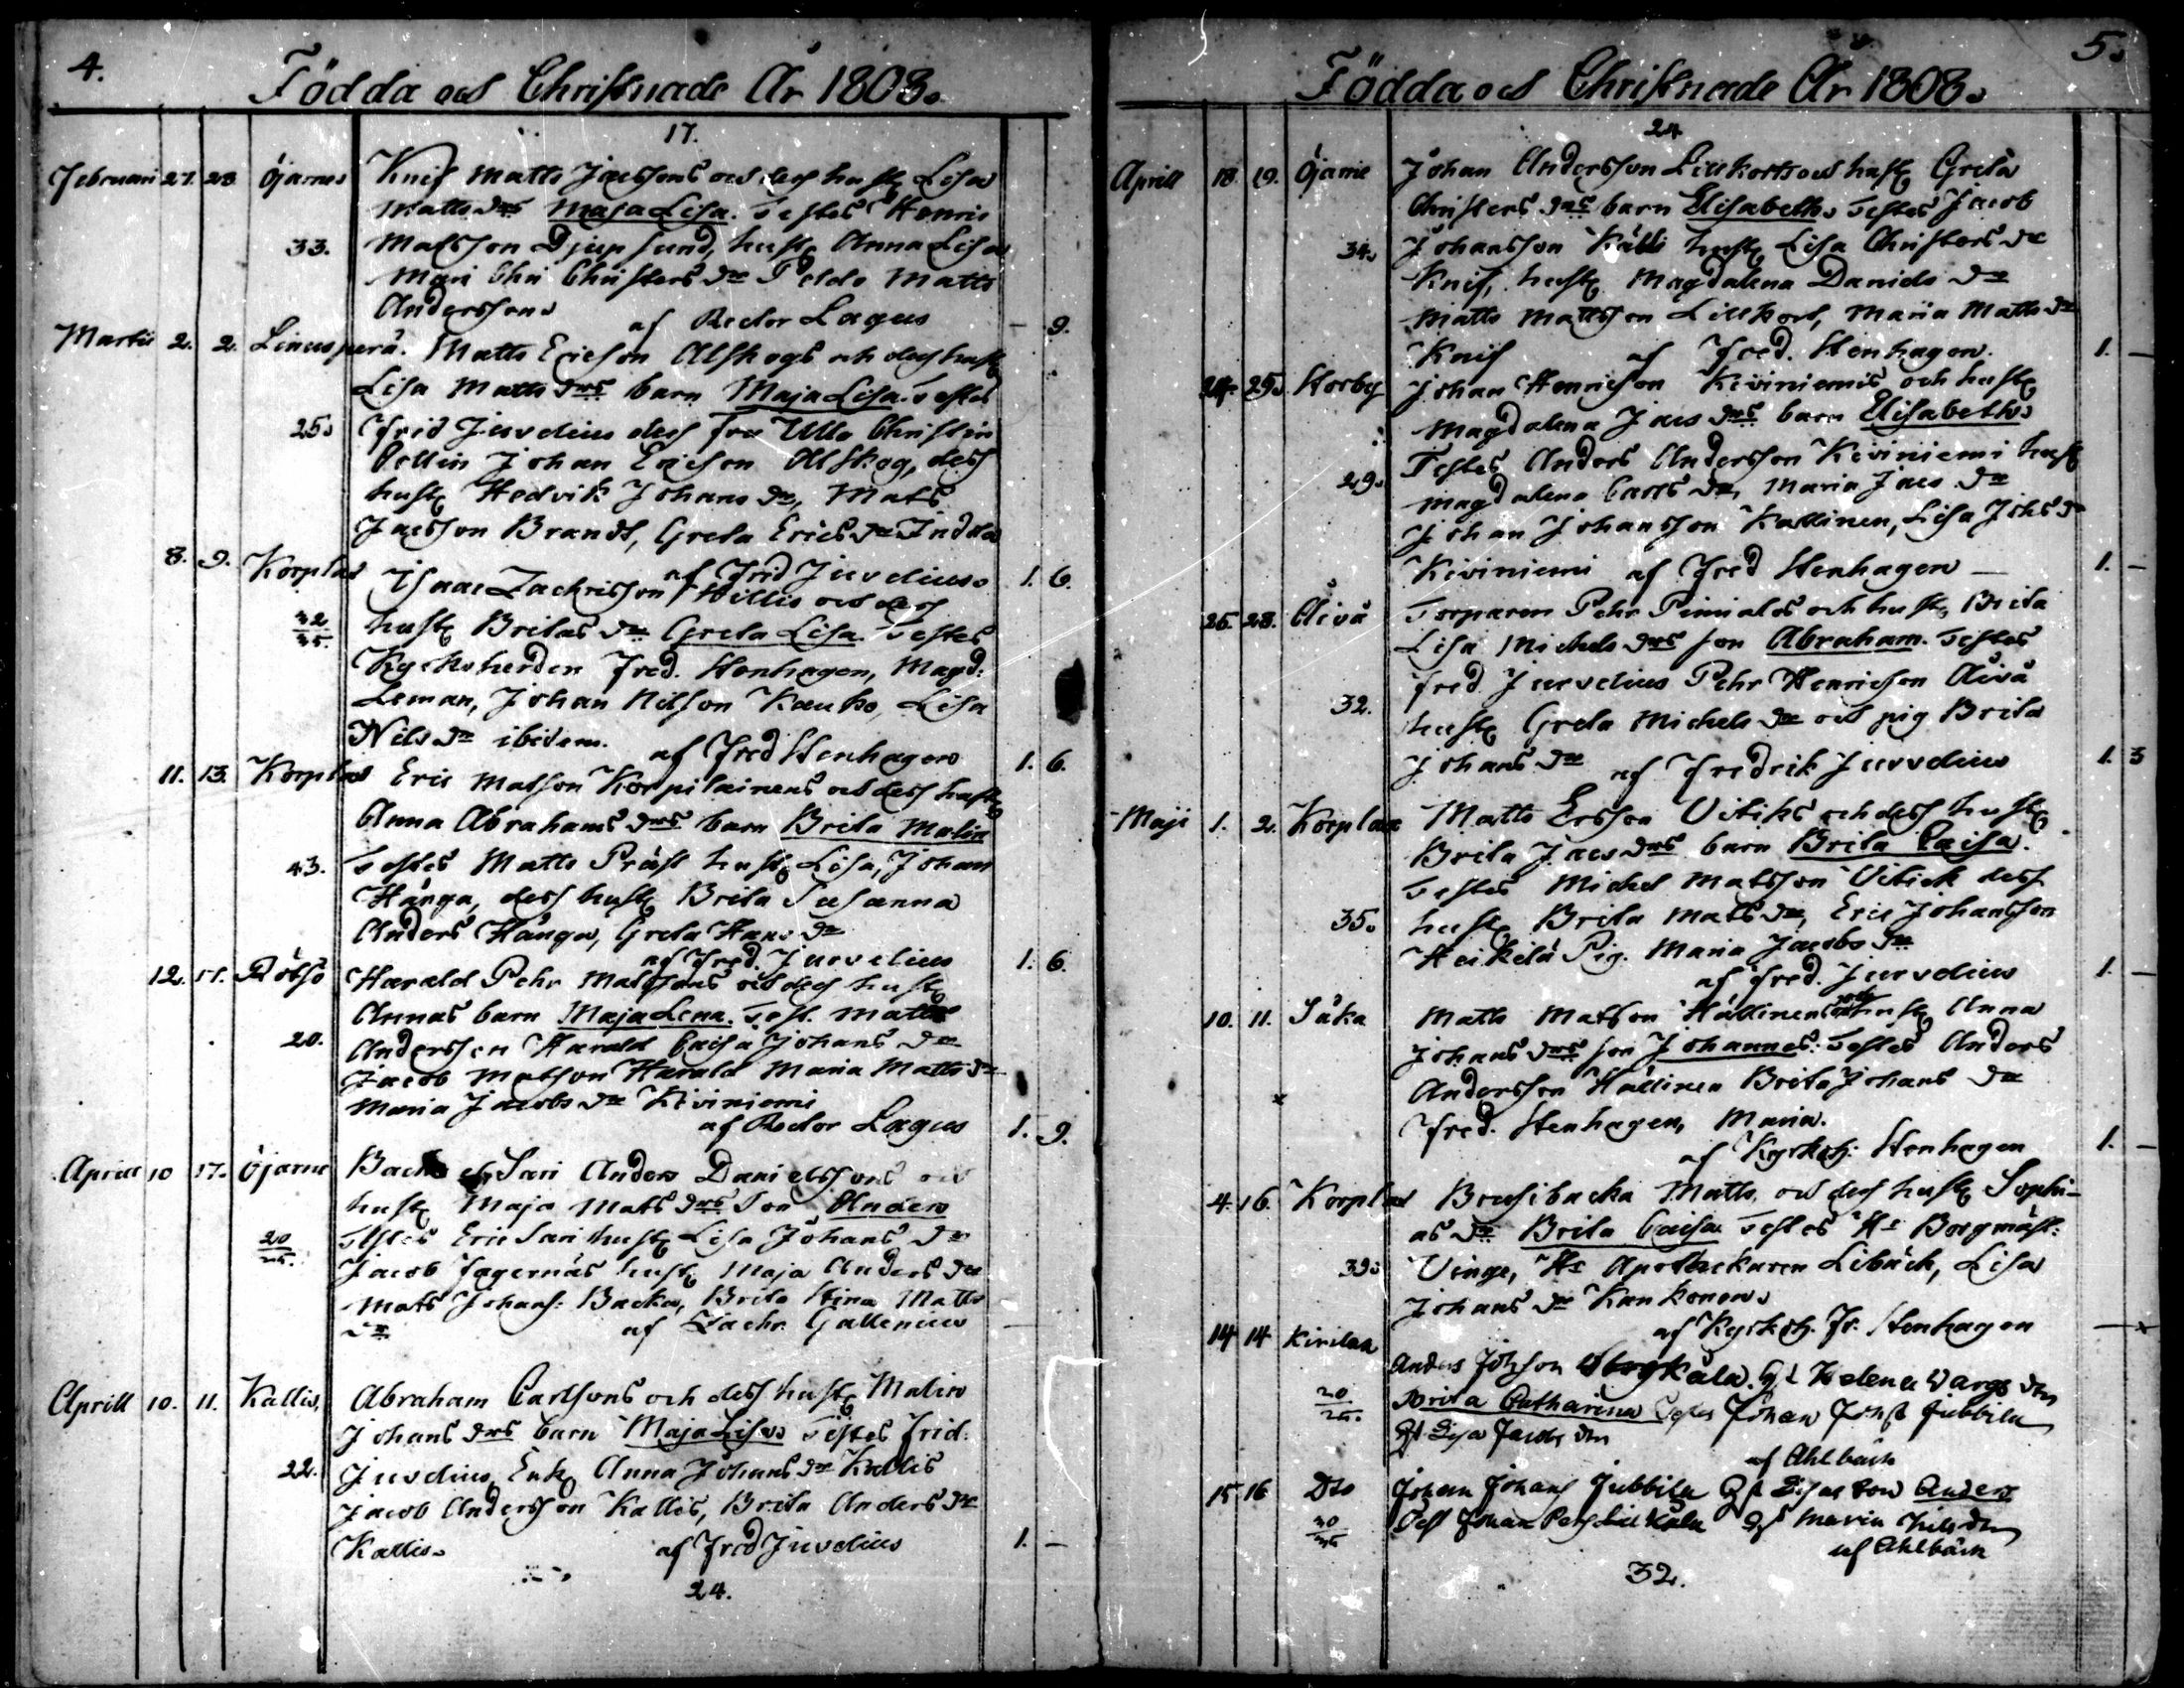 4.
Födda och Christnade År 1808.
17.
Februari 27. 28. Öjarne Knif Matts Jacssons och dess hust Lisa
Mattsdrs Maja Lisa. Testes Henric
33. Matsson Djupsund, hust Anna Lisa
Christersdr Peldo Matts
Andersson
af Rector Lagus — 9.
Martii 2. 2. Linusperä. Matts Ericson Alskogs och dess hust
Lisa Mattsdrs barn Maja Lisa. Testes
25. Frid Juvelius dess fru Ulla Christin
Johan Ericson Alskog, dess
hust Hedvik Johansdr, Mats
Jacsson Brandt, Greta Ericsdr Indola
af Frid Juvelius. 1. 6.
8. 9. Korplax Isaac Zachrisson Willis och dess
32/35. hust Britas dr Greta Lisa. Testes
Kyrkoherden Fred. Stenhagen, Magd:
Leman, Johan Nilsson Kauko, Lisa
Nilsdr ibidem.
af Fred Stenhagen 1. 6.
11. 13. Korplax Eric Matson Korpilainens och dess hust
Anna Abrahamsdrs barn Brita Malin
43. Testes Matts Präst hust Lisa, Johan
Hånga, dess hust Brita Susanna
Anders Hånga, Greta Hansdr
af Fred. Juvelius 1. 6.
12. 17. Röbso Harald Pehr Matssons och dess hust
Annas barn Maja Lena. Test. Matts
20. Andersson Harald Caisa Johansdr
Jacob Matson Harald Maria Mattsdr
Maria Jacobsdr Kiviniemi
af Rector Lagus 1. 9.
Aprill 10 17. Öjarne Backa Sari Anders Danielssons och
hust Maja Matsdrs Son Anders
20/25. Testes Eric Sari hust Lisa Johansdr
Jacob Fagernäs hust Maja Andersdr
Mats Johans: Backa, Brita Stina Matts
dr af Zachr. Gallenius —
Aprill 10. 11. Kallis, Abraham Carlsons och dess hust Malin
Johansdrs barn Maja Lisa. Testes Frid:
22. Juvelius, Enk Anna Johansdr Kallis
Jacob Andersson Kallis, Brita Andersdr
Kallis. af Fred Juvelius 1. —
24.
5.
Födda och Christnade År 1808.
24
Aprill 18. 19. Öjarne Johan Andersson Lillkorts och hust Greta
Christersdrs barn Elisabeth. Testes Jacob
34. Johansson Källi hust Lisa Christersdr
Knif, hust Magdalena Danielsdr
Matts Mattsson Lillkort, Maria Mattsdr
Knif af Fred. Stenhagen. 1. —
24. 25. Storby Johan Henricson Kiviniemis och hust
Magdalena Jacsdrs barn Elisabeth.
29. Testes Anders Andersson Kiviniemi hust
Magdalena Carlsdr, Maria Jacsdr
Johan Johansson Kallinen, Lisa Johsdr
Kiviniemi af Fred Stenhagen — 1. —
25. 28. Åivå Torparen Pehr Pimialas och hust Brita
Lisa Michelsdrs son Abraham. Testes
32. Fred. Juvelius Pehr Henricson Åivå
hust Greta Michelsdr och pig Brita
Johansdr af Fredrik Juvelius 1. 3
Maji 1. 2. Korplax Matts Ersson Vitiks och dess hust
Brita Jacsdrs barn Brita Caisa.
Testes Michel Matsson Vitick dess
35. hust Brita Matsdr, Eric Johansson
Heikilä Pig. Maria Jacobsdr
af Fred. Juvelius 1. —
10. 11. Såka Matts Matson Hällinens och hust Anna
Johansdrs son Johannes. Testes Anders
Andersson Hällinen Brita Johansdr
x Fred. Stenhagen, Maria.
af Kyrkoh: Stenhagen 1. —
4. 16. Korplax Brusibacka Matts och dess hust Sophi-
as dr Brita Caisa Testes Hr Borgmäst:
39. Vinge, Hr Apothekaren Libäck, Lisa
Johansdr Kankonen
af Kyrkoh. Fr. Stenhagen — x
14 14 Kirilax Anders Johson Helena
20/25. Brita Catharina Testes Johan Johs Jubbila
Lisa Jacobsdr
af Ahlbäck
15 16 Dto Johan Johans Jubbila Lisas son Anders
30/35 Test Johan Maria Nilsdr
af Ahlbäck
32.